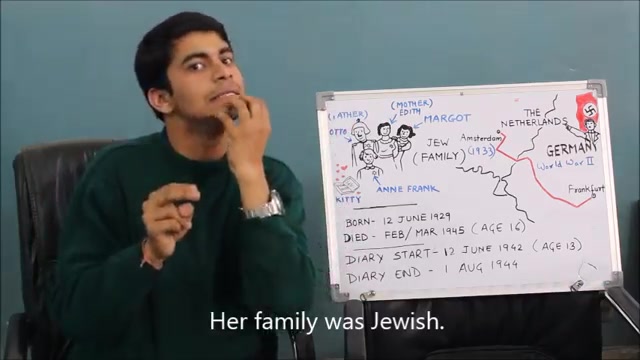 (FATHER)
OTTO
(MOTHER)
EDITH
MARGOT
JEW
(FAMILY)
ANNE FRANK
KITTY
THE
NETHERLANDS
Amsterdam
(1933)
GERMANY
World War II
Frankfurt
BORN- 12 JUNE 1929
DIED - FEB/MAR 1945 (AGE 16)
DIARY START- 12 JUNE 1942 (AGE 13)
DIARY END - 1 AUG 1944
Her family was Jewish.